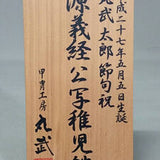 成二十七年五月五日生誕
丸武 太郎 節句祝
源義経公写稚児
甲冑工房 丸武